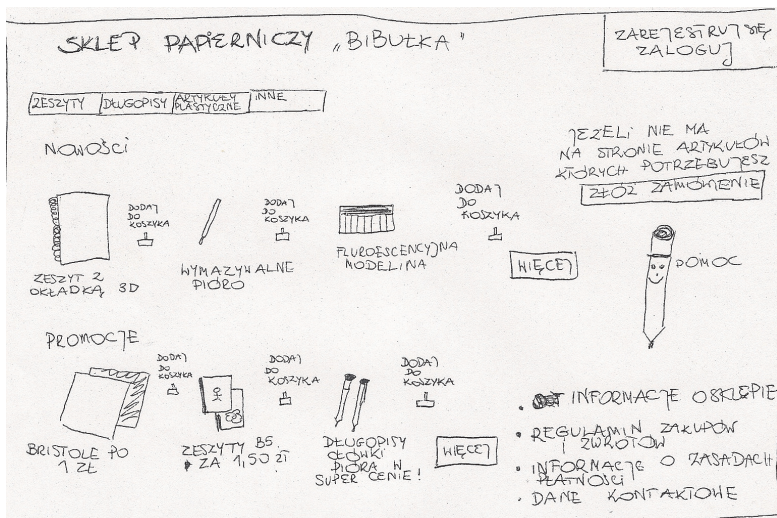 SKLEP PAPIERNICZY „BIBUŁKA"
ZAREJESTRUJ SIĘ
ZALOGUJ
ZESZYTY
DŁUGOPISY
ARTYKUŁY
PLASTYCZNE
INNE
JEŻELI NIE MA
NA STRONIE ARTYKUŁÓW
KTÓRYCH POTRZEBUJESZ
ZŁÓŻ ZAMÓWIENIE
NOWOŚCI
DODAJ
DO
KOSZYKA
ZESZYT Z
OKŁADKĄ 3D
DODAJ
DO
KOSZYKA
WYMAZYWALNE
PIÓRO
DODAJ
DO
KOSZYKA
FLUROESCENCYJNA
MODELINA
WIĘCEJ
POMOC
PROMOCJE
DODAJ
DO
KOSZYKA
BRISTOLE PO
1 ZŁ
DODAJ
DO
KOSZYKA
ZESZYTY B5
ZA 1,50 ZŁ
DODAJ
DO
KOSZYKA
DŁUGOPISY
OŁÓWKI
PIÓRA W
SUPER CENIE!
WIĘCEJ
• INFORMACJE O SKLEPIE
• REGULAMIN ZAKUPÓW
I ZWROTÓW
• INFORMACJE O ZASADACH
PŁATNOŚCI
• DANE KONTAKTOWE